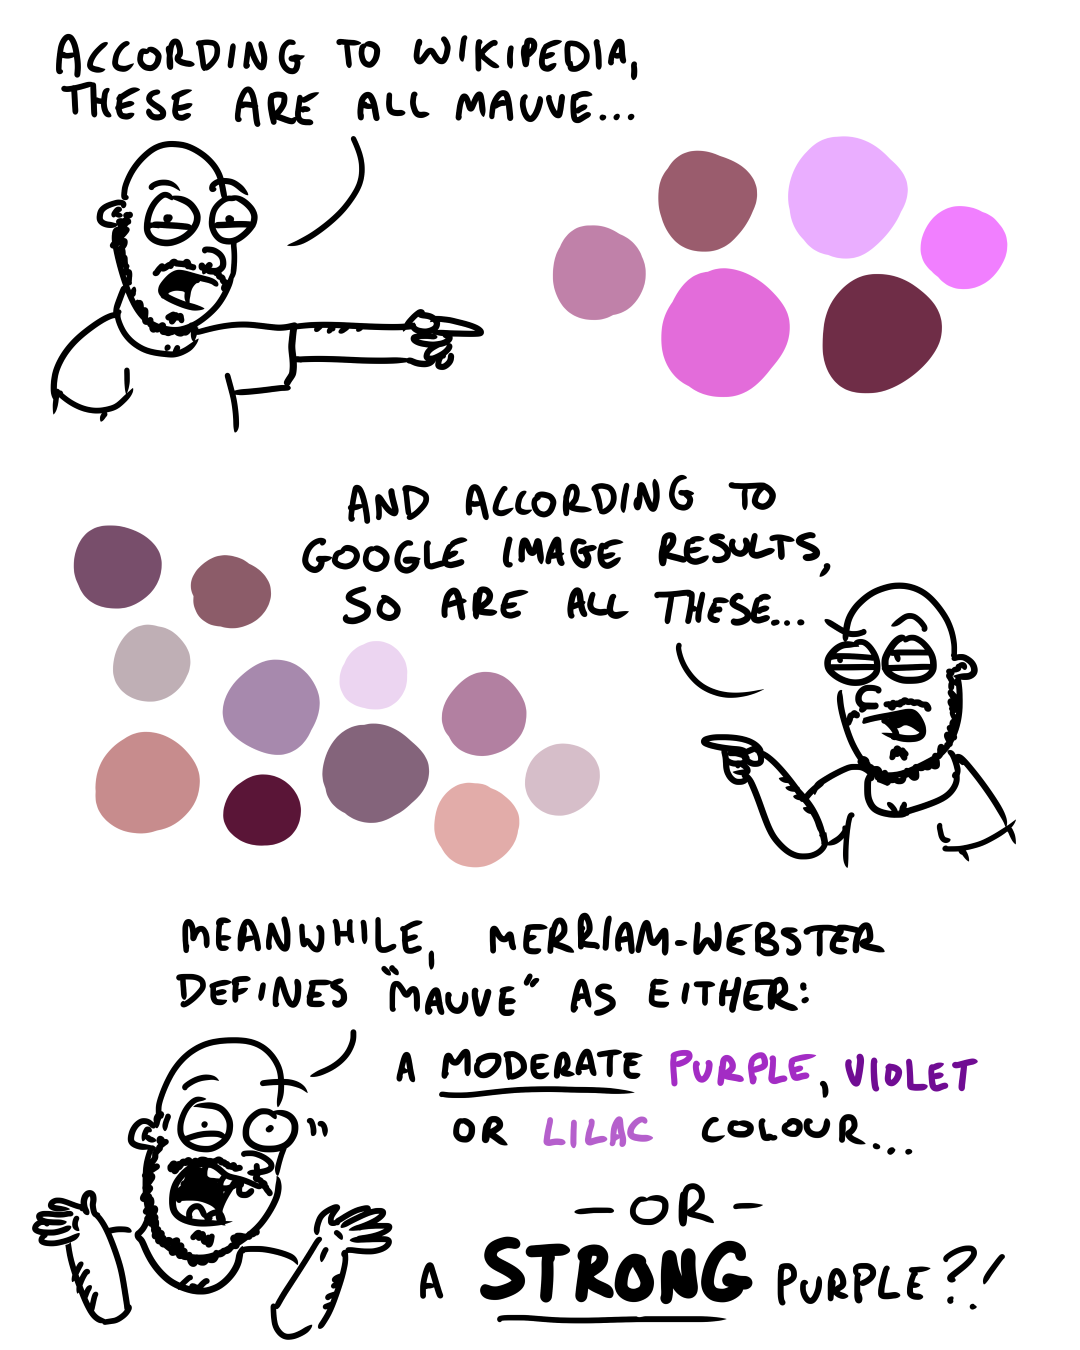 ACCORDING TO WIKIPEDIA,
THESE ARE ALL MAUVE...
AND ACCORDING TO
GOOGLE IMAGE RESULTS,
SO ARE ALL THESE...
MEANWHILE, MERRIAM-WEBSTER
DEFINES "MAUVE" AS EITHER:
A MODERATE PURPLE, VIOLET
OR LILAC COLOUR...
-OR-
A STRONG PURPLE?!